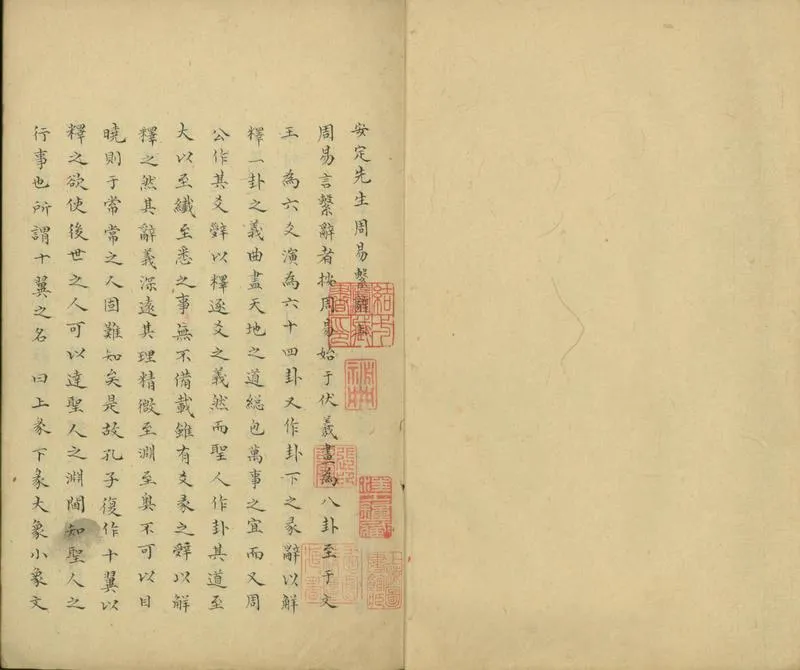 安定先生周易繫辭
周易言繫辭者按周易始于伏羲畫為八卦至于文
王 為六爻演為六十四卦又作卦下之彖辭以解
釋一卦之義曲盡天地之道総包萬事之宜而又周
公作其爻辭以釋逐爻之義然而聖人作卦其道至
大以至纖至悉之事無不備載雖有爻彖之辭以解
釋之然其辭義深遠其理精微至淵至奧不可以目
曉則于常常之人固難知矣是故孔子復作十翼以
釋之欲使後世之人可以達聖人之淵閫知聖人之
行事也所謂十翼之名 曰上彖下彖大象小象文